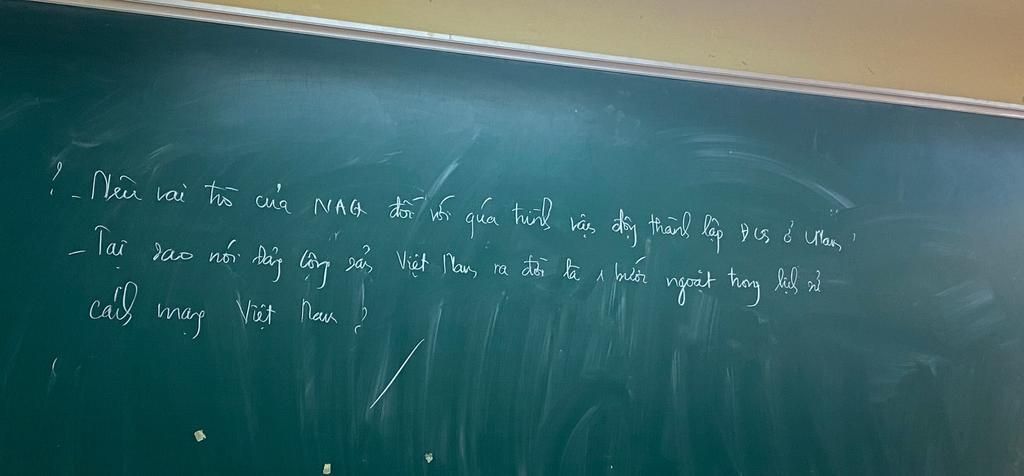 ? - Nêu vai trò của NAQ đối với quá trình vận động thành lập ĐCS ở VNam?
- Tại sao nói Đảng Cộng sản Việt Nam ra đời là 1 bước ngoặt trong lịch sử
cách mạng Việt Nam?